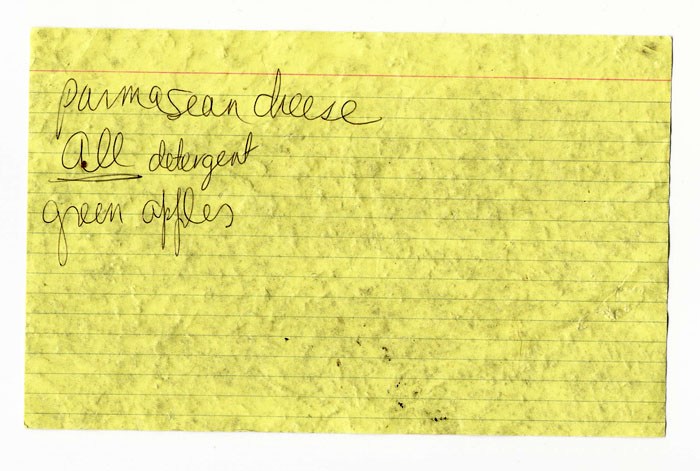 parmasean cheese
All detergent
green apples